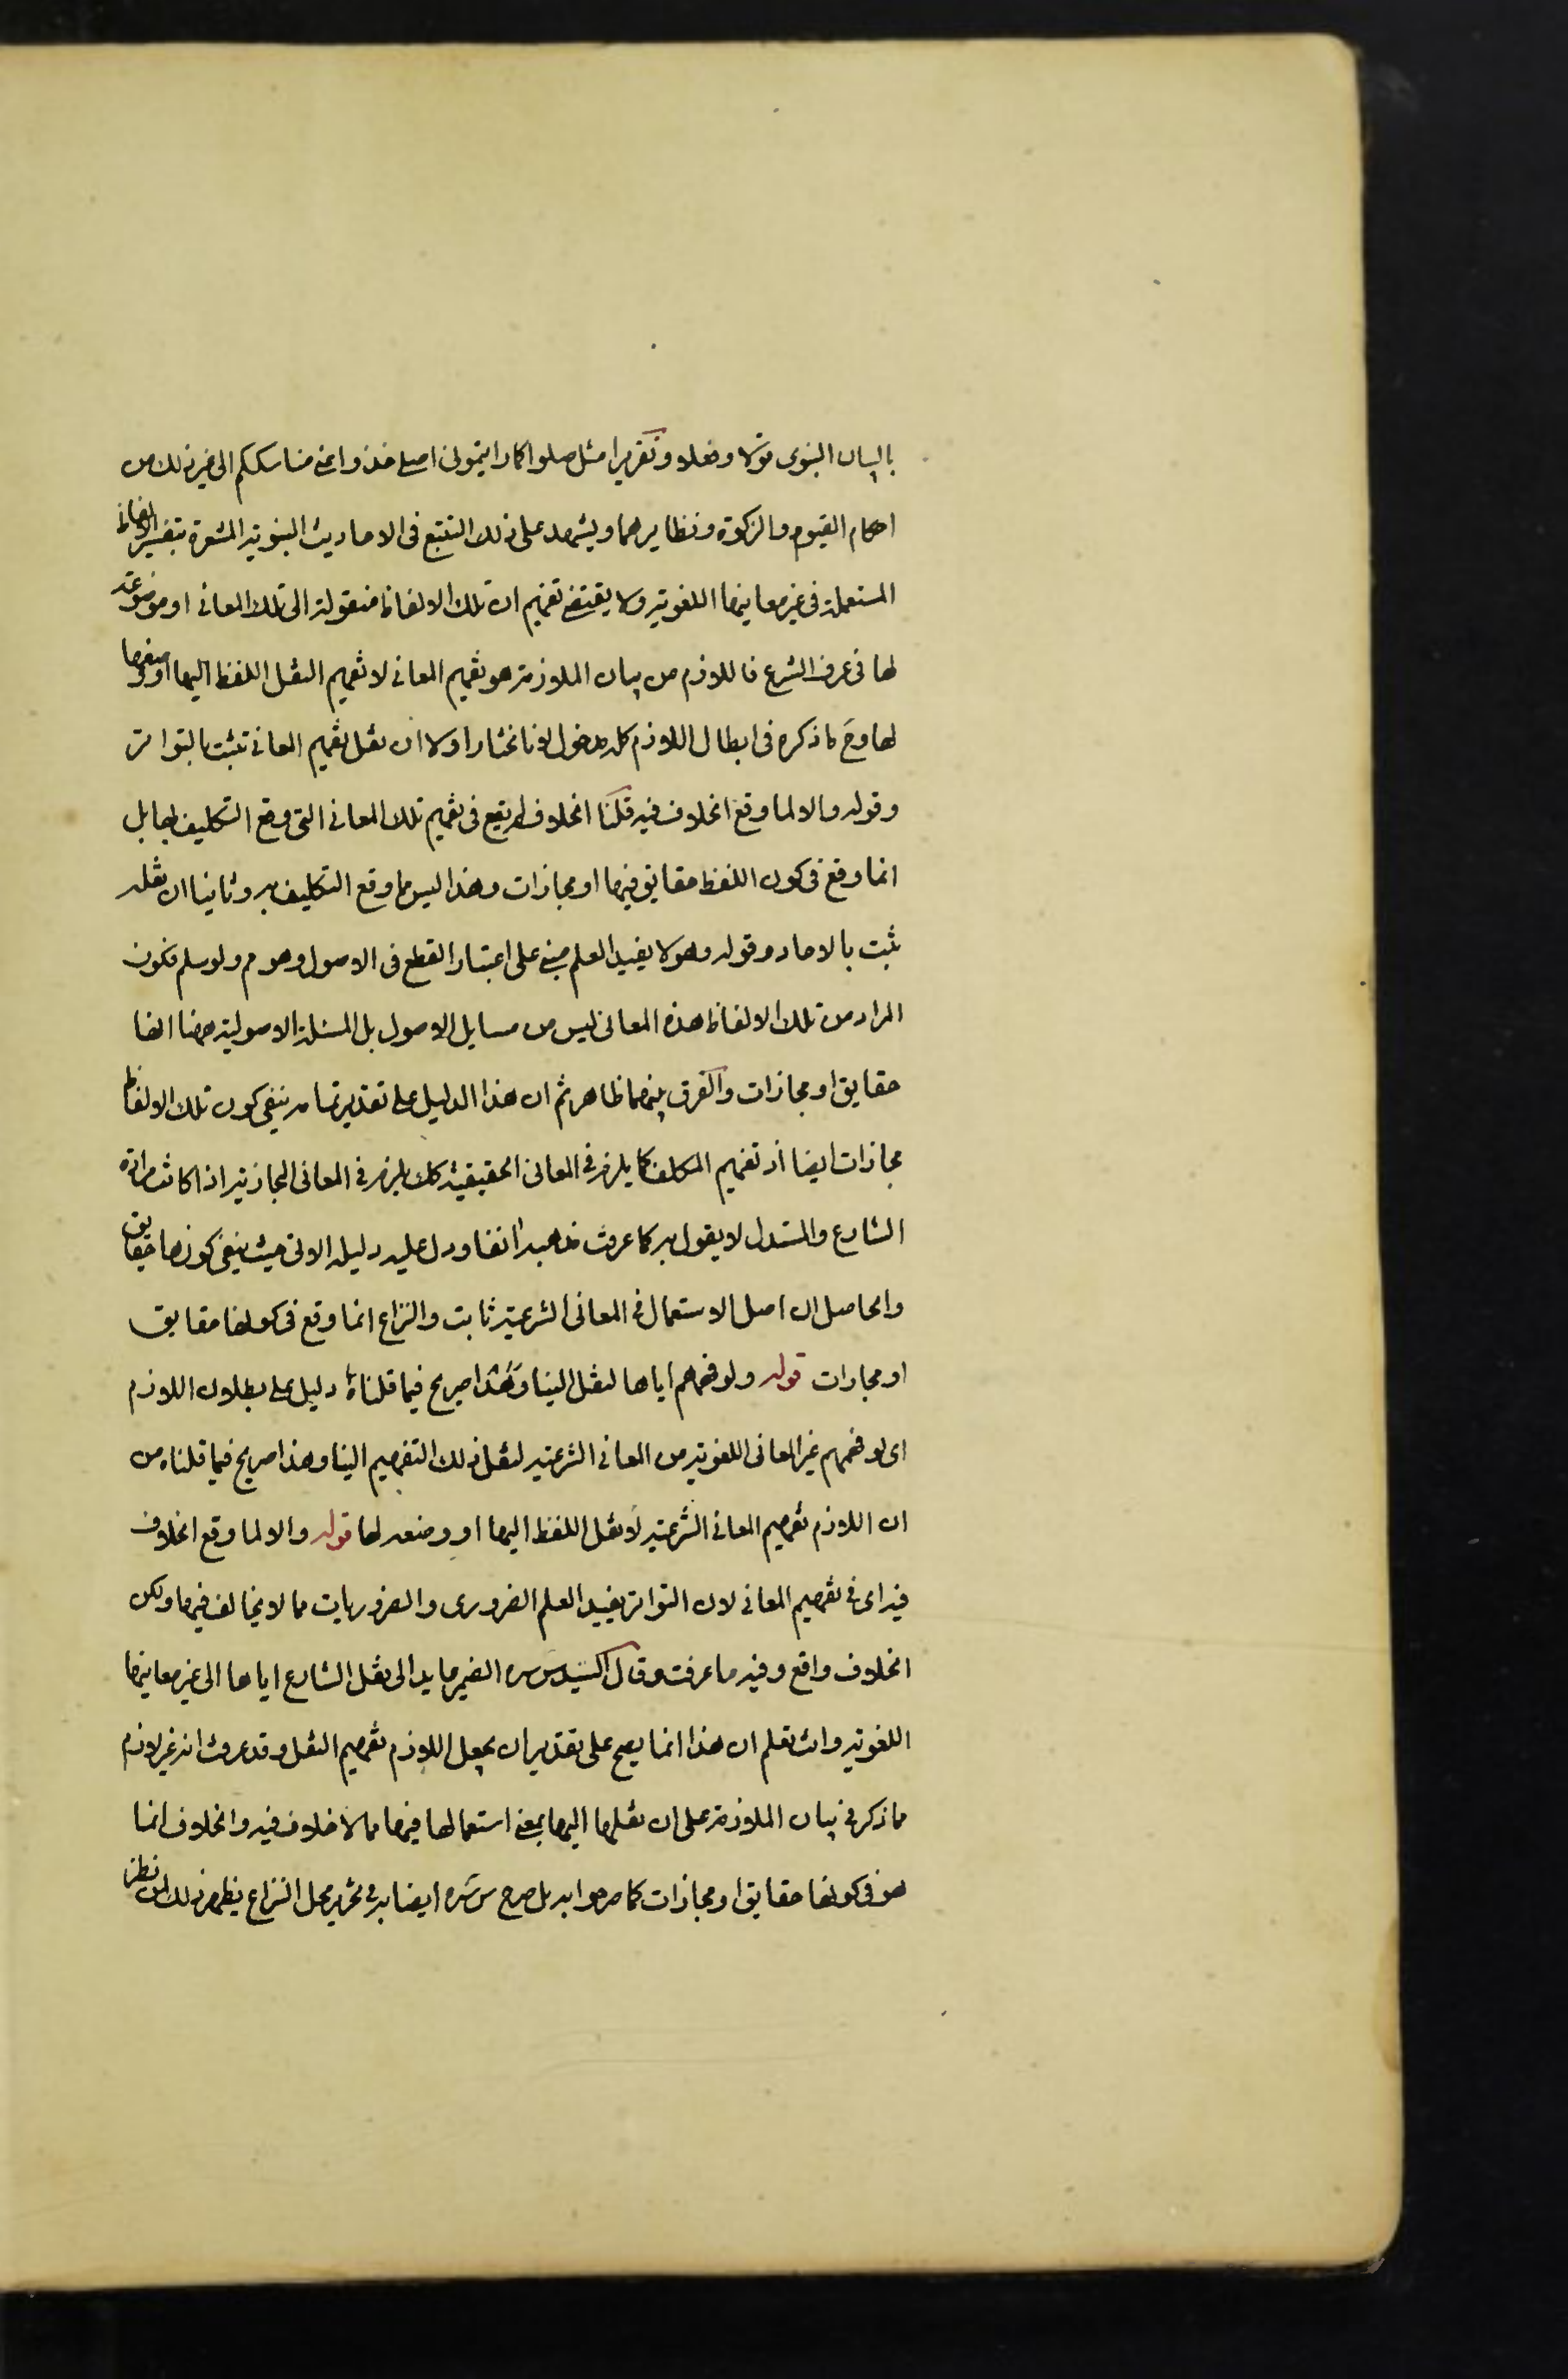 بالبيان النبوى قولا وفعلا وتقريرا مثل صلوا كما رايتمونى اصلى خذوا عنى مناسككم الى غير ذلك من
احكام الصوم والزكوة ونظايرهما ويشهد على ذلك التتبع فى الاحاديث النبوية المشعرة بتفسير الالفاظ
المستعملة فى غير معانيها اللغوية ولا يقتضى تفهيم ان تلك الالفاظ منقولة الى تلك المعانى او موضوعة
لها فى عرف الشرع فاللازم من بيان الملازمة هو تفهيم المعانى لا تفهيم النقل اللفظ اليها او وضعها
لها وح ما ذكره فى ابطال اللازم كله مدخول لانا نختار اولا ان نقل تفهيم المعانى تثبت بالتواتر
وقوله والا لما وقع الخلاف فيه قلنا الخلاف لم يقع فى تفهيم تلك المعانى التى وقع التكليف بها بل
انما وقع فى كون اللفظ حقايق فيها او مجازات وهذا ليس مما وقع التكليف به وثانيا ان نقله
ثبت بالاحاد وقوله وهو لا يفيد العلم مبنى على اعتبار القطع فى الاصول وهو م ولو سلم فكون
المراد من تلك الالفاظ هذه المعانى ليس من مسايل الاصول بل المسئلة الاصولية ههنا انها
حقايق او مجازات والفرق بينهما ظاهر ثم ان هذا الدليل على تقدير تمامه ينفى كون تلك الالفاظ
مجازات ايضا اذ تفهيم المكلف كما يلزم فى المعانى الحقيقية كك يلزم فى المعانى المجازية اذا كانت مرادة
الشارع والمستدل لا يقول به كما عرفت مذهبه انفا ودل عليه دليله الاتى حيث ينفى كونها حقايق
والحاصل ان اصل الاستعمال فى المعانى الشرعية ثابت والنزاع انما وقع فى كونها حقايق
او مجازات قوله ولو فهمهم اياها لنقل الينا وهذا صريح فيما قلناه دليل على بطلان اللازم
اى لو فهمهم غير المعانى اللغوية من المعانى الشرعية لنقل ذلك التفهيم الينا وهذا صريح فيما قلناه من
ان اللازم تفهيم المعانى الشرعية لا نقل اللفظ اليها او وضعه لها قوله والا لما وقع الخلاف
فيه اى فى تفهيم المعانى لان التواتر يفيد العلم الضرورى والضروريات مما لا يخالف فيها ولكن
الخلاف واقع وفيه ما عرفت وقال السيد س سره الضمير عايد الى نقل الشارع اياها الى غير معانيها
اللغوية وانت تعلم ان هذا انما يصح على تقدير ان يجعل اللازم تفهيم النقل وقد عرفت انه غير لازم
مما ذكر فى بيان الملازمة على ان نقلها اليها بمعنى استعمالها فيها مما لا خلاف فيه والخلاف انما
هو فى كونها حقايق او مجازات كما صرحوا به بل صرح س سره ايضا به فى تحرير محل النزاع يظهر ذلك لمن نظر